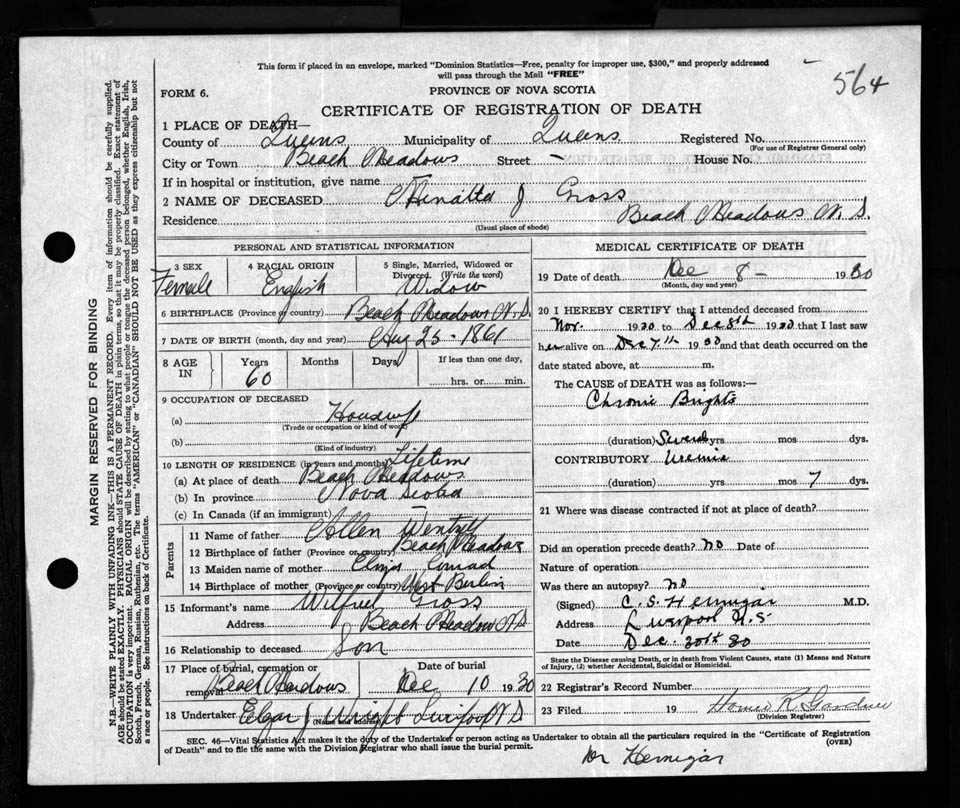 This form if placed in an envelope, marked "Dominion Statistics—Free, penalty for improper use, $300," and properly addressed
will pass through the Mail "FREE"
564
FORM 6.
PROVINCE OF NOVA SCOTIA
CERTIFICATE OF REGISTRATION OF DEATH
1 PLACE OF DEATH—
County of Queens Municipality of Queens Registered No.
(For use of Registrar General only)
City or Town Beach Meadows Street – House No.
If in hospital or institution, give name –
2 NAME OF DECEASED J Gross
Residence Beach Meadows N.S.
(Usual place of abode)
PERSONAL AND STATISTICAL INFORMATION
3 SEX 4 RACIAL ORIGIN 5 Single, Married, Widowed or
Divorced. (Write the word)
Female English Widow
6 BIRTHPLACE (Province or country) Beach Meadows N.S.
7 DATE OF BIRTH (month, day and year) 25 - 1861
8 AGE IN Years Months Days If less than one day,
60 hrs. or min.
9 OCCUPATION OF DECEASED
(a) Housewife
(Trade or occupation or kind of work)
(b)
(Kind of industry)
10 LENGTH OF RESIDENCE (in years and months) Lifetime
(a) At place of death Beach Meadows
(b) In province Nova Scotia
(c) In Canada (if an immigrant) –
Parents
11 Name of father Allen Wentzell
12 Birthplace of father (Province or country) Beach Meadows
13 Maiden name of mother Conrad
14 Birthplace of mother (Province or country) West Berlin
15 Informant's name Wilfred Gross
Address Beach Meadow N.S.
16 Relationship to deceased Son
17 Place of burial, cremation or Date of burial
removal Beach Meadows Dec 10 1930
18 Undertaker J Wright Liverpool N S
(Name and address)
MEDICAL CERTIFICATE OF DEATH
19 Date of death Dec 8 – 1930
(Month, day and year)
20 I HEREBY CERTIFY that I attended deceased from
Nov. 1930 to Dec 8th 1930 that I last saw
her alive on Dec 7th 1930 and that death occurred on the
date stated above, at m.
The CAUSE of DEATH was as follows:
Chronic Brights
(duration) Several yrs. mos. dys.
CONTRIBUTORY Uremia
(duration) yrs. mos. 7 dys.
21 Where was disease contracted if not at place of death?
Did an operation precede death? No Date of
Nature of operation
Was there an autopsy? No
(Signed) C. S. Hennigar M.D.
Address Liverpool N.S.
Date Dec. 30th 30
State the Disease causing Death, or in death from Violent Causes, state (1) Means and Nature
of Injury, (2) whether Accidental, Suicidal or Homicidal.
22 Registrar's Record Number
23 Filed 19 Homer R. Gardner
(Division Registrar)
SEC. 46—Vital Statistics Act makes it the duty of the Undertaker or person acting as Undertaker to obtain all the particulars required in the "Certificate of Registration
of Death" and to file the same with the Division Registrar who shall issue the burial permit.
(OVER)
Dr Hennigar
MARGIN RESERVED FOR BINDING
N.B.—WRITE PLAINLY WITH UNFADING INK—THIS IS A PERMANENT RECORD. Every item of information should be carefully supplied.
AGE should be stated EXACTLY. PHYSICIANS should STATE CAUSE OF DEATH in plain terms, so that it may be properly classified. Exact statement of
OCCUPATION is very important. RACIAL ORIGIN will be described by stating to what people or tongue the deceased person belonged, whether English, Irish,
Scotch, French, German, Russian, Ruthenian, etc. The terms "AMERICAN" or "CANADIAN" SHOULD NOT BE USED as they express citizenship but not
a race or people. See instructions on back of Certificate.